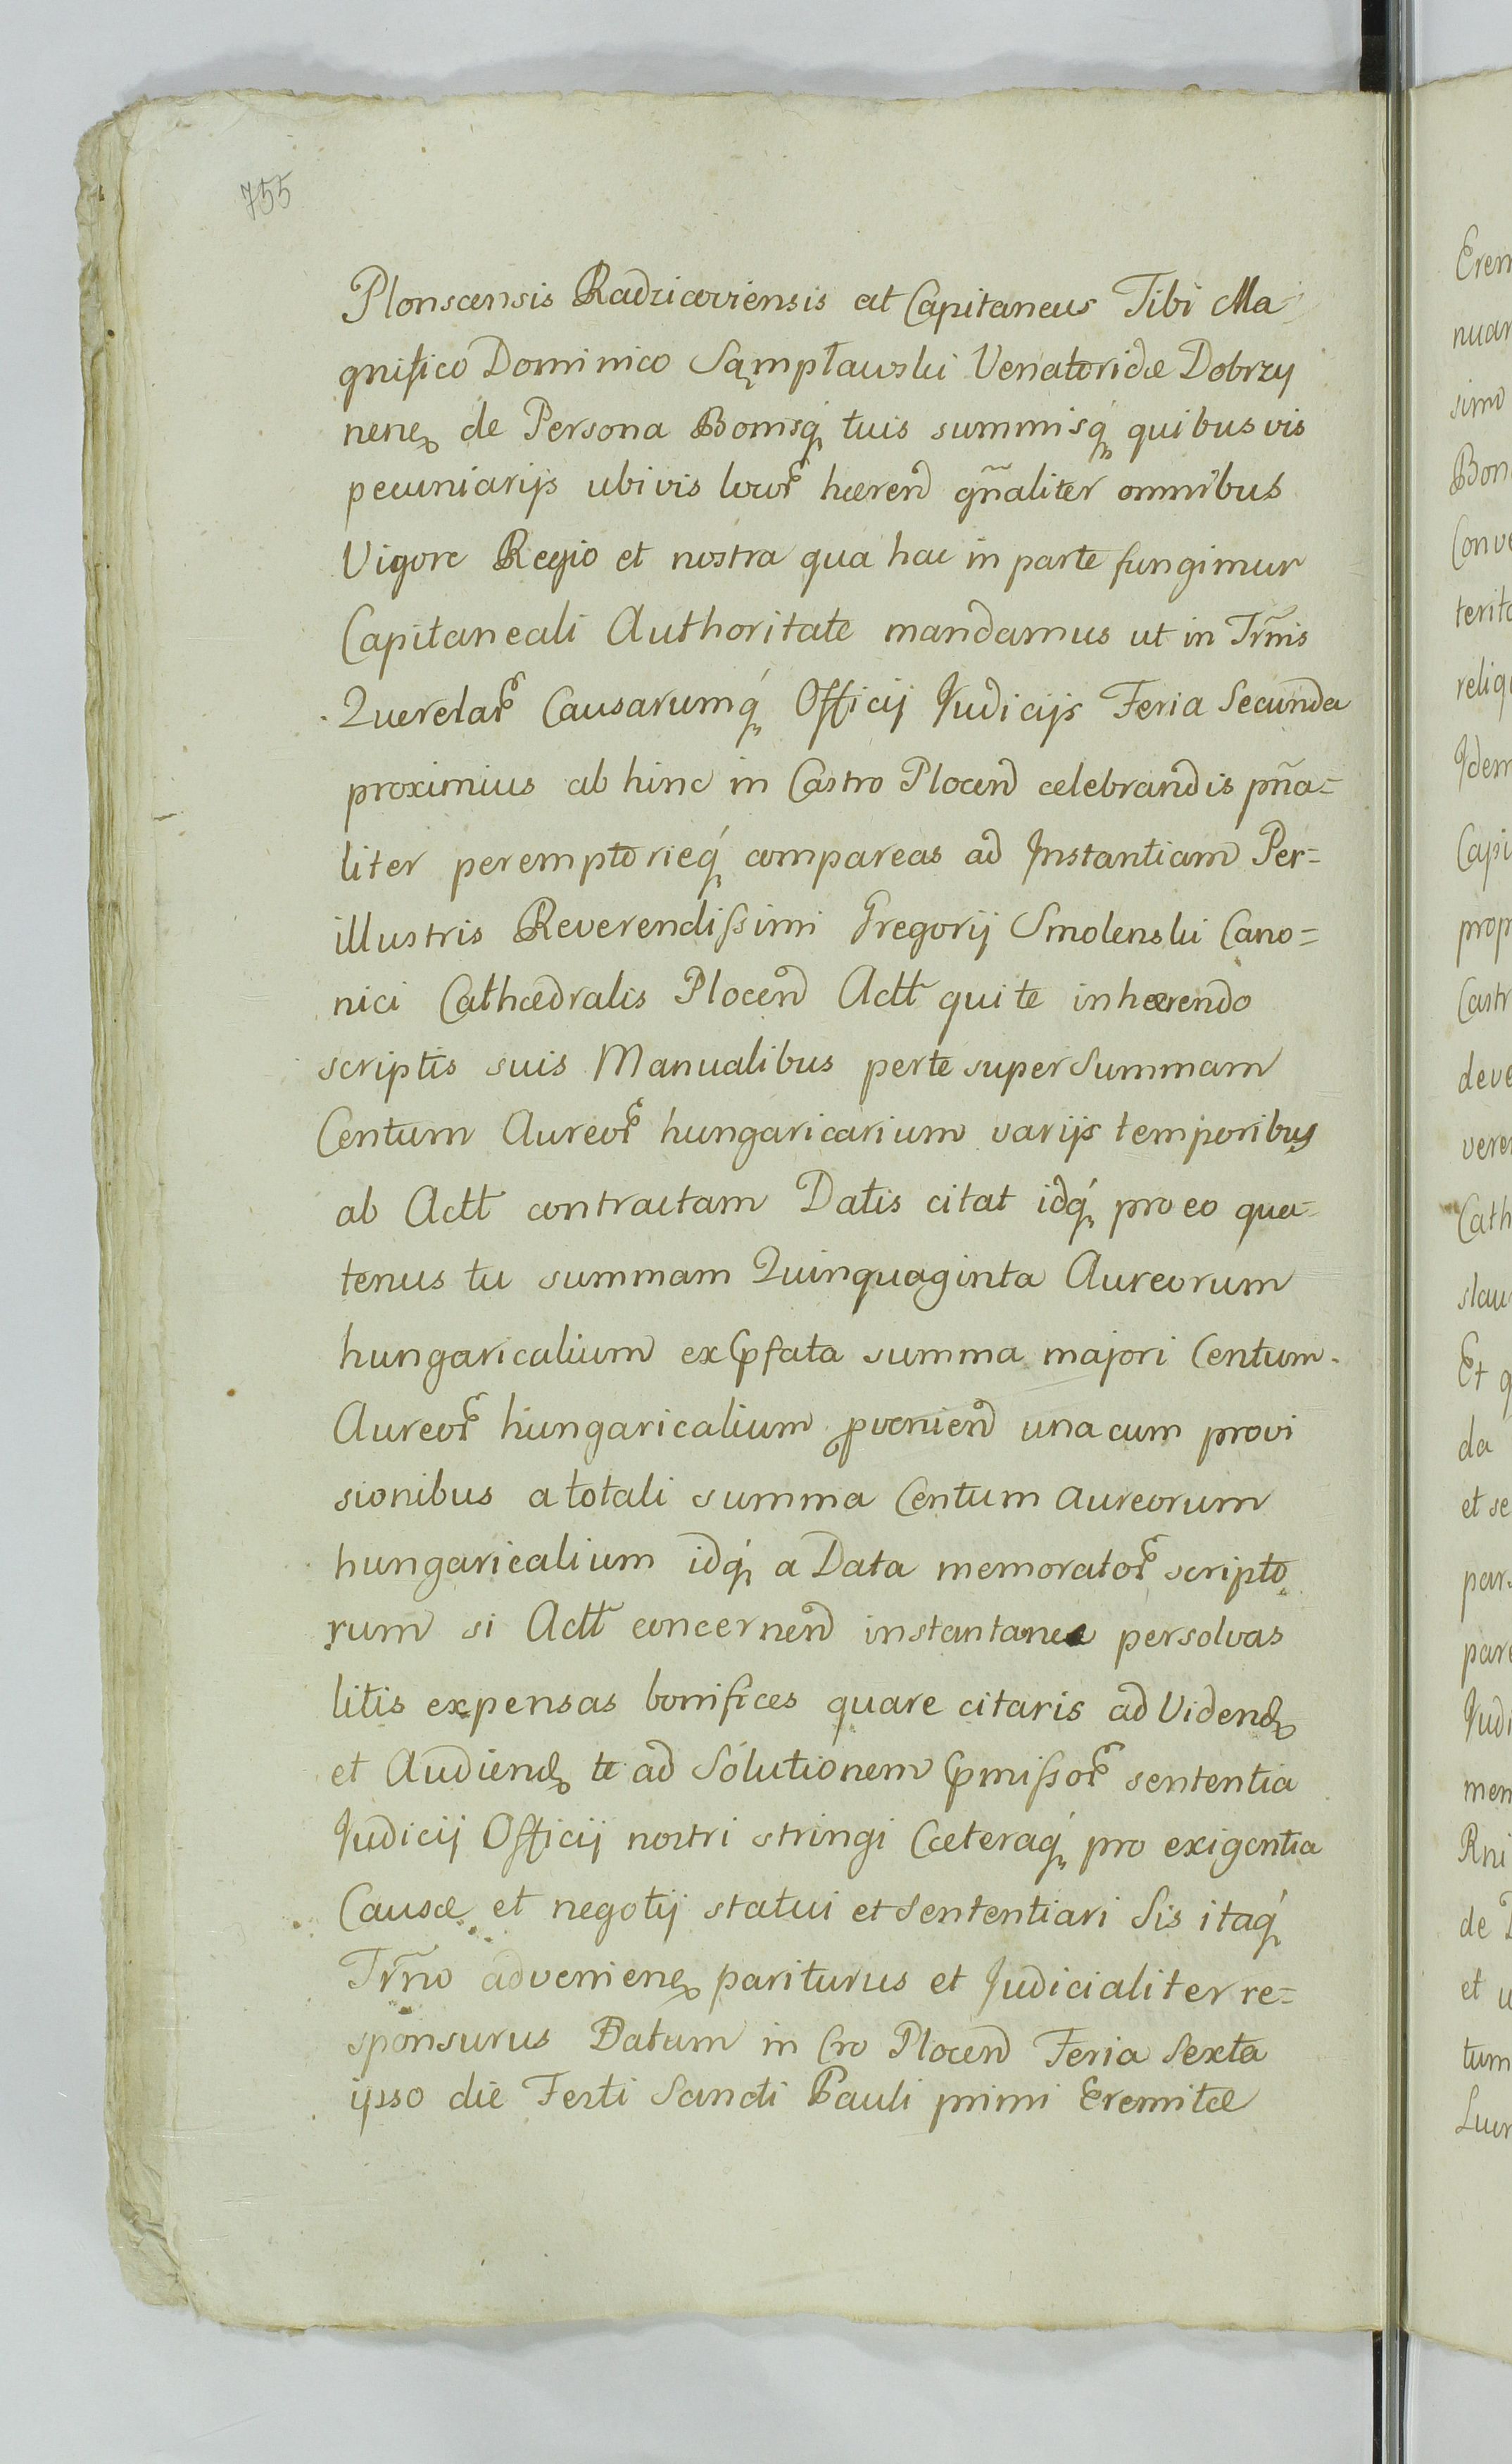 755
Plonscensis Radzicoviensis at Capitaneus Tibi Ma
gnifico Dominico Sąmpławski Venatoridæ Dobrzy
nenẽ de Persona Bonisq́ tuis summisq́ quibusvis
pecuniarijs ubivis locor̃ hæren̄d gñaliter omnibus
Vigore Regio et nostra qua hac in parte fungimur
Capitaneali Authoritate mandamus ut in Trm̃is
Querelar̃ Causarumq́ Officij Judicijs Feria Secunda
proximius ab hinc in Castro Plocen̄d celebrandis pña=
liter peremptorieq́ compareas ad Instantiam Per=
illustris Reverendissimi Gregorij Smolenski Cano=
nici Cathædralis Plocen̄d Actt qui te inhærendo
scriptis suis Manualibus perte super Summam
Centum Aureor̃ hungaricarium varijs temporibus
ab Actt contractam Datis citat idq́ pro eo qua=
tenus tu summam Quinquaginta Aureorum
hungaricalium ex p̃fata summa majori Centum
Aureor̃ hungaricalium ꝓvenien̄d una cum provi
sionibus a totali summa Centum aureorum
hungaricalium idq́ a Data memorator̃ scripto
rum si Actt concernen̄d instantanea persolvas
litis expensas bonifices quare citaris ad Videnḍ
et Audienḍ te ad Solutionem p̃missor̃ sententia
Judicij Officij nostri stringi Cæteraq́ pro exigentia
Causæ et negotij statui et Sententiari Sis itaq́
Trm̃o advenienẽ pariturus et Judicialiter re=
sponsurus Datum in Cro Plocen̄d Feria Sexta
ipso die Festi Sancti Pauli primi Eremitæ